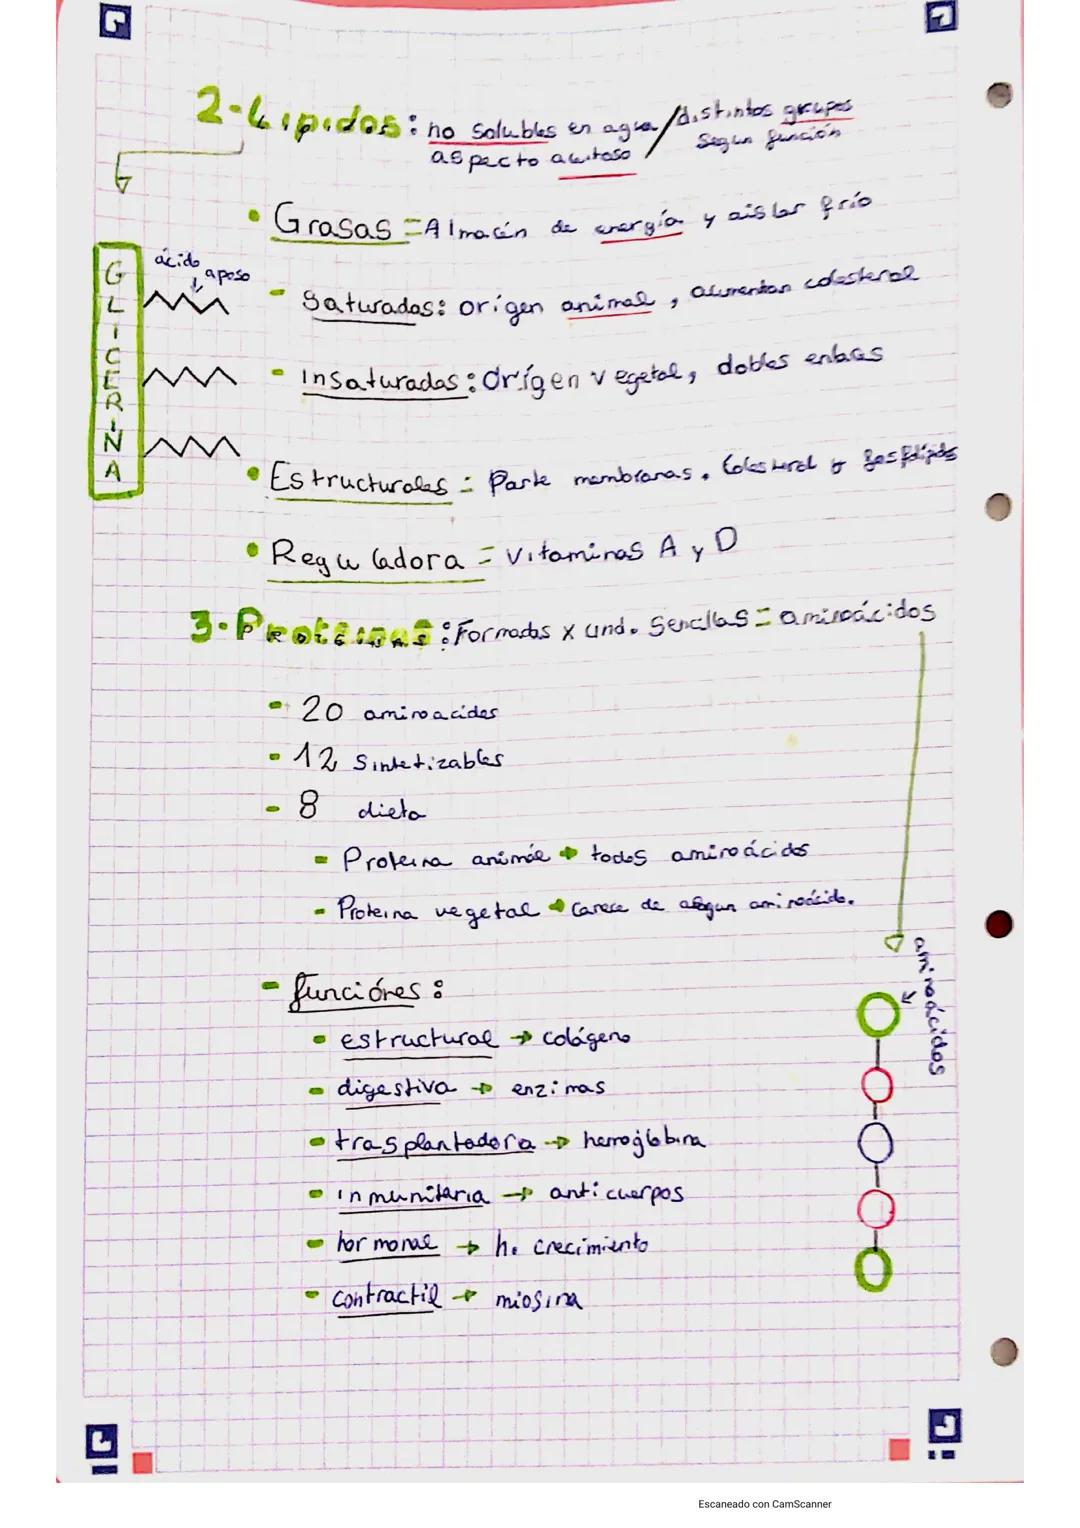 2-Lípidos: no solubles en agua / distintos grupos
aspecto aceitoso / Segun función
• Grasas = Almacén de energía y aislar frío
ácido
aposo
GLICERINA
- Saturadas: orígen animal, aumentan colesterol
- insaturadas: Orígen vegetal, dobles enlaces
• Estructurales = Parte membranas. Colesterol y fosfolípidos
• Reguladora = vitaminas A y D
3-Proteínas: Formadas x und. Sencillas = aminoácidos
- 20 aminoacidos
- 12 Sintetizables
- 8 dieta
- Proteina animal → todos aminoácidos
- Proteina vegetal → Carece de algun aminoácido.
aminoácidos
- funciónes:
- estructural → colágeno
- digestiva → enzimas
- trasplantadora → hemoglobina
- inmunitaria → anticuerpos
- hormonal → h. crecimiento
- contractil → miosina
Escaneado con CamScanner